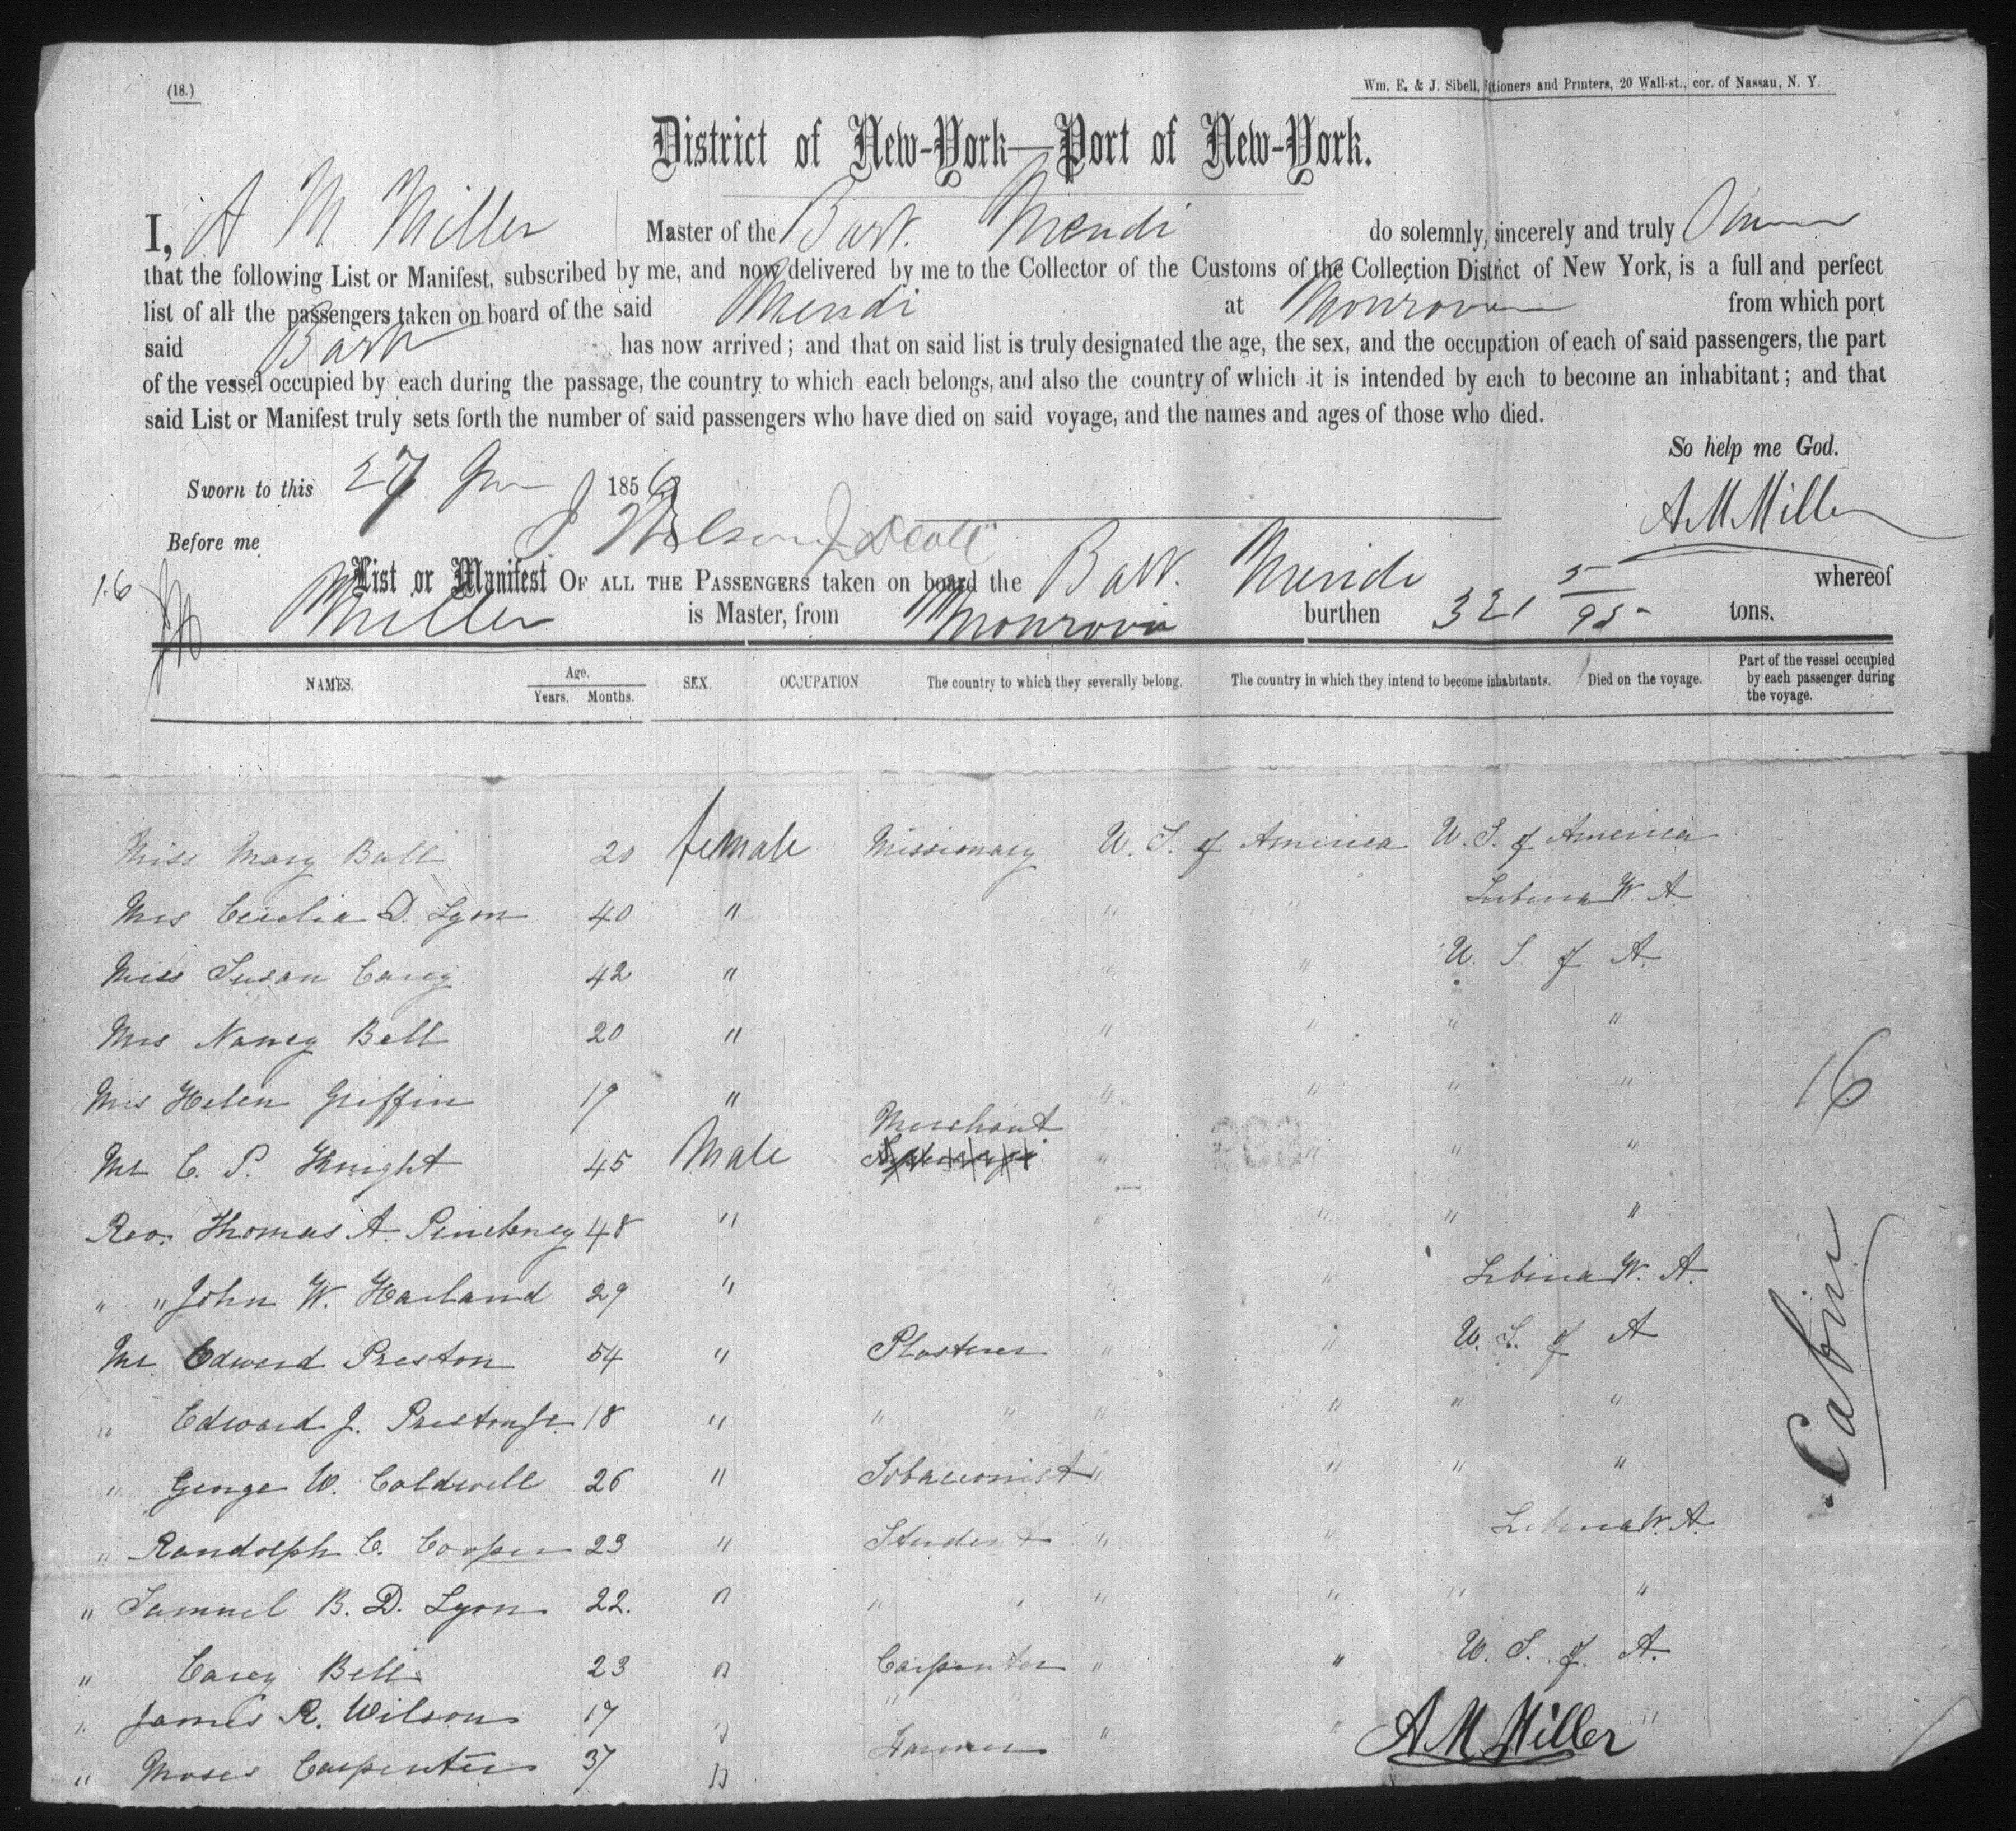 (18.)
Wm. E. & J. Sibell, Stationers and Printers, 20 Wall-st., cor. of Nassau, N. Y.
District of New-York—Port of New-York.
I, A M Miller Master of the Bark Mendi do solemnly, sincerely and truly
that the following List or Manifest, subscribed by me, and now delivered by me to the Collector of the Customs of the Collection District of New York, is a full and perfect
list of all the passengers taken on board of the said Mendi at Monrovia from which port
said Bark has now arrived; and that on said list is truly designated the age, the sex, and the occupation of each of said passengers, the part
of the vessel occupied by each during the passage, the country to which each belongs, and also the country of which it is intended by each to become an inhabitant; and that
said List or Manifest truly sets forth the number of said passengers who have died on said voyage, and the names and ages of those who died.
So help me God.
Sworn to this 27 1856
A M Miller
Before me
16
List or Manifest OF ALL THE PASSENGERS taken on board the Bark Mendi whereof
Miller is Master, from Monrovia burthen 321 5/95 tons.
NAMES. Age. Years. Months. SEX. OCCUPATION The country to which they severally belong. The country in which they intend to become inhabitants. Died on the voyage. Part of the vessel occupied by each passenger during the voyage.
Miss Mary Ball 20 female Missionary U. S. of America U. S. of America
Mrs Cecelia D. Lyon 40 " " " Liberia W. A
Miss Susan Carey 42 " " " U. S. of A.
Mrs Nancy Bell 20 " " " " "
Mrs Helen Griffin 19 " " " " "
Mr C. P. Knight 45 Male Merchant " " " "
Rev. Thomas A. Pinckney 48 " " " " "
" " John W. Harland 29 " " " Liberia W. A.
Mr Edward Preston 54 " Plasterer " " U. S. of A
" Edward J. Preston Jr. 18 " " " " " " "
" George W. Caldwell 26 " Tobacconist " " " "
" Randolph C. Cooper 23 " Student " " Liberia W. A.
" Samuel B. D. Lyon 22. " " " " " " "
" Carey Bell 23 " Carpenter " " U. S. of A.
" James R. Wilson 17 " " "
" Moses Carpenter 37 " Farmer " " "
A M Miller
16
Cabin